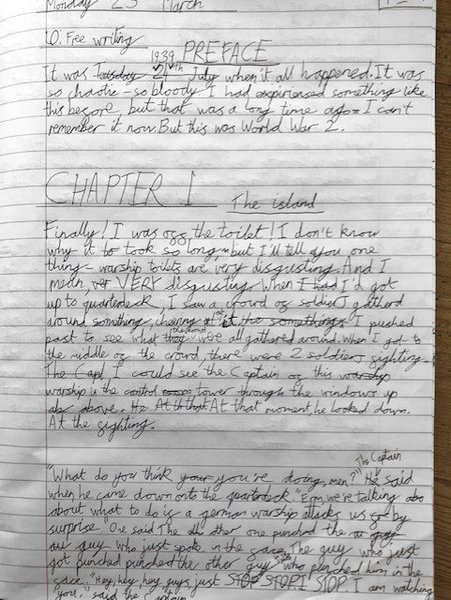 Monday 23 March
LO. Free writing
1939 PREFACE
It was Tuesday 24th July when it all happened. It was
so chaotic - so bloody. I had experienced something like
this before, but that was a long time ago. I can't
remember it now. But this was World War 2.
CHAPTER 1 The island
Finally! I was off the toilet! I don't know
why it to took so long, but I'll tell you one
thing - warship toilets are very disgusting. And I
mean, ver VERY disgusting. When I had I'd got
up to quarterdeck, I saw a crowd of soldiers gatherd
around something, cheering at it the something. I pushed
past to see what they the crowd were all gathered around. When I got to
the middle of the crowd, there were 2 soldiers fighting.
The Capt I could see the Captain of this warship
warship in the control room tower through the windows up
abo above. He At th that At that moment, he looked down.
At the fighting.
"What do you think your you're doing, men?" The Captain He said
when he came down onto the quarterdeck. "Erm, we're talking abo
about what to do if a german warship attacks us by
surprise" One said The other one punched the
guy who just spoke in the face. The guy who just
got punched punched the other guy who punched him in the
face. "Hey, hey, hey guys, just STOP STOP! STOP. I am watching
you," said the Captain